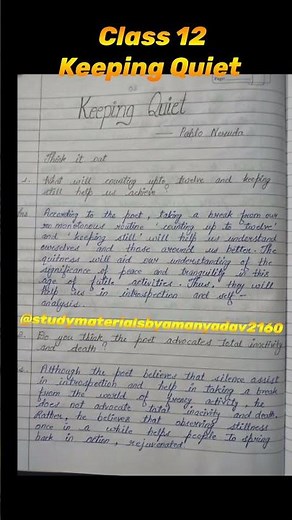 Class 12
Keeping Quiet
Keeping Quiet
Pablo Neruda
Think it out
1. What will counting upto twelve and keeping
still help us achieve
Ans. According to the poet, taking a break from our
monotonous routine counting up to "twelve"
and keeping still will help us understand
ourselves and those around us better. The
quitness will aid our understanding of the
significance of peace and tranquility in this
age of futile activities. Thus, they will
help us in introspection and self-
analysis.
@studymaterialsbyamanyadav2160
2. Do you think the poet advocates total inactivity
and death
Although the poet believes that silence assist
in introspection and help in taking a break
from the world of activity, he
does not advocate total inacivity and death.
Rather, he believes that observing stillness
once in a while helps people to spring
back in action, rejuvenated.